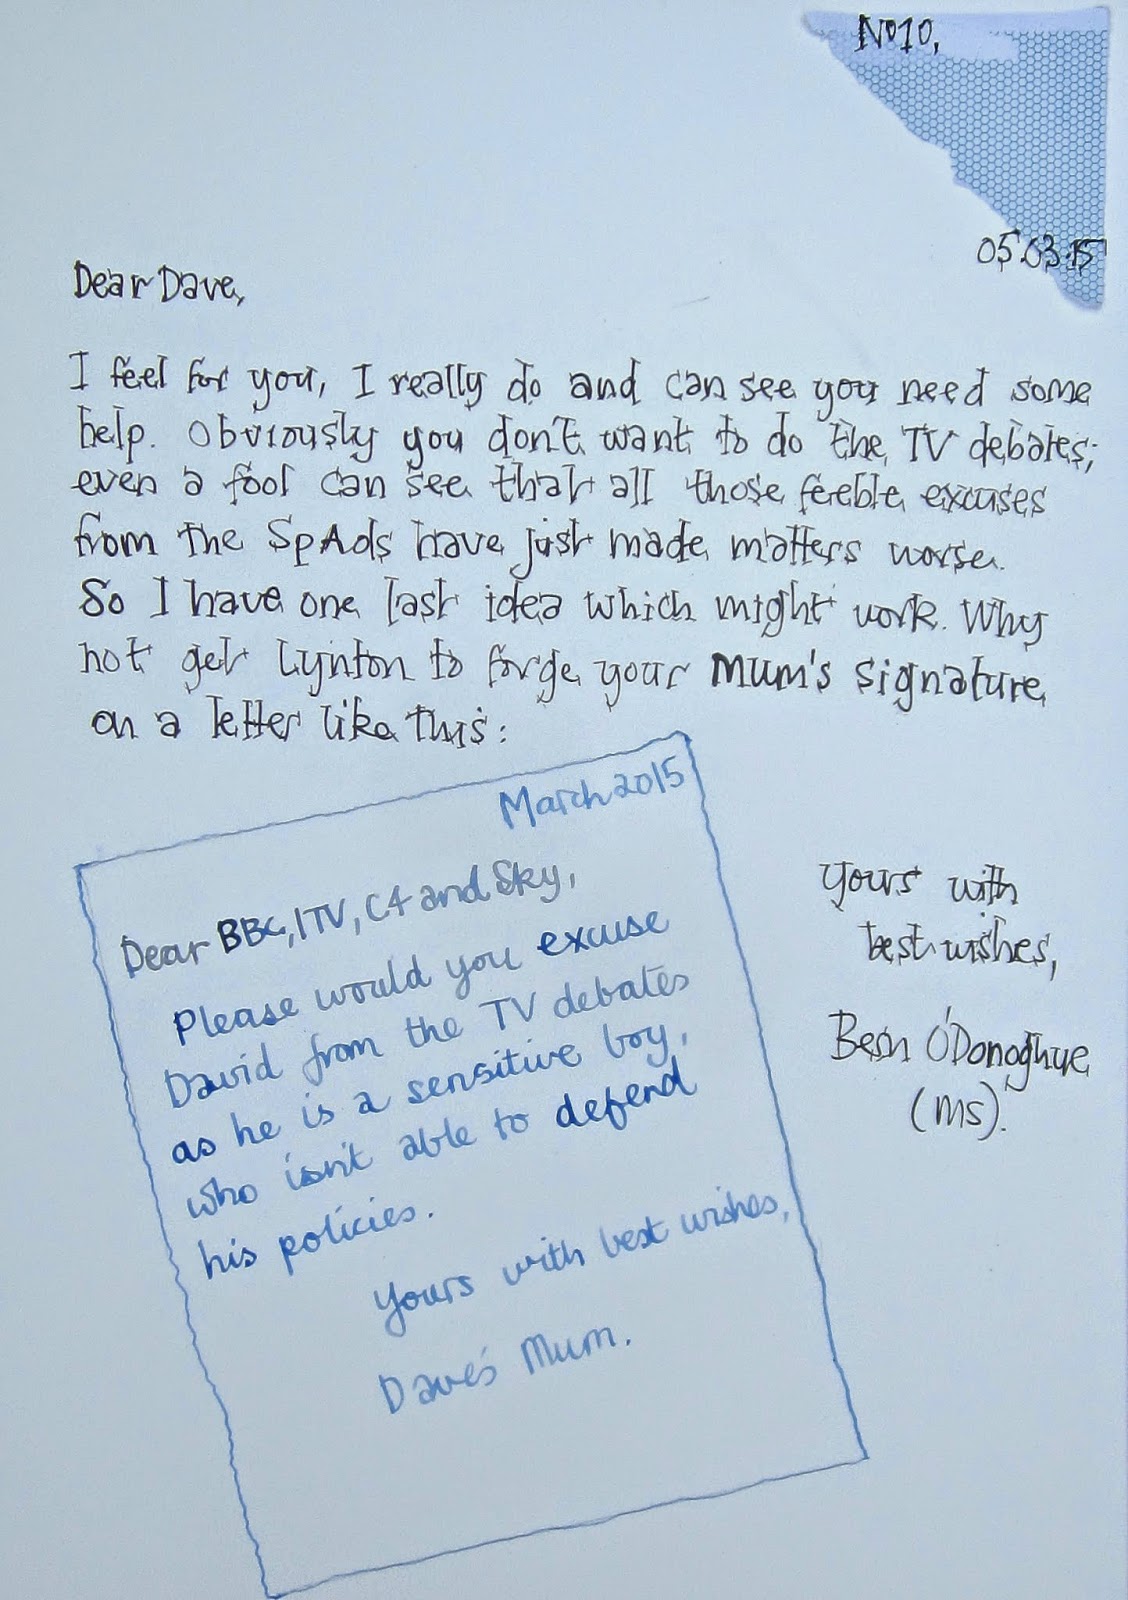 No10,
05.03.15
Dear Dave,
I feel for you, I really do and can see you need some
help. Obviously you don't want to do the TV debates;
even a fool can see that all those feeble excuses
from the SpAds have just made matters worse.
So I have one last idea which might work. Why
not get Lynton to forge your Mum's signature
on a letter like this:
March 2015
Dear BBC, ITV, C4 and Sky,
Please would you excuse
David from the TV debates
as he is a sensitive boy,
who isn't able to defend
his policies.
Yours with best wishes,
Dave's Mum.
Yours with
best wishes,
O'Donoghue
(Ms).